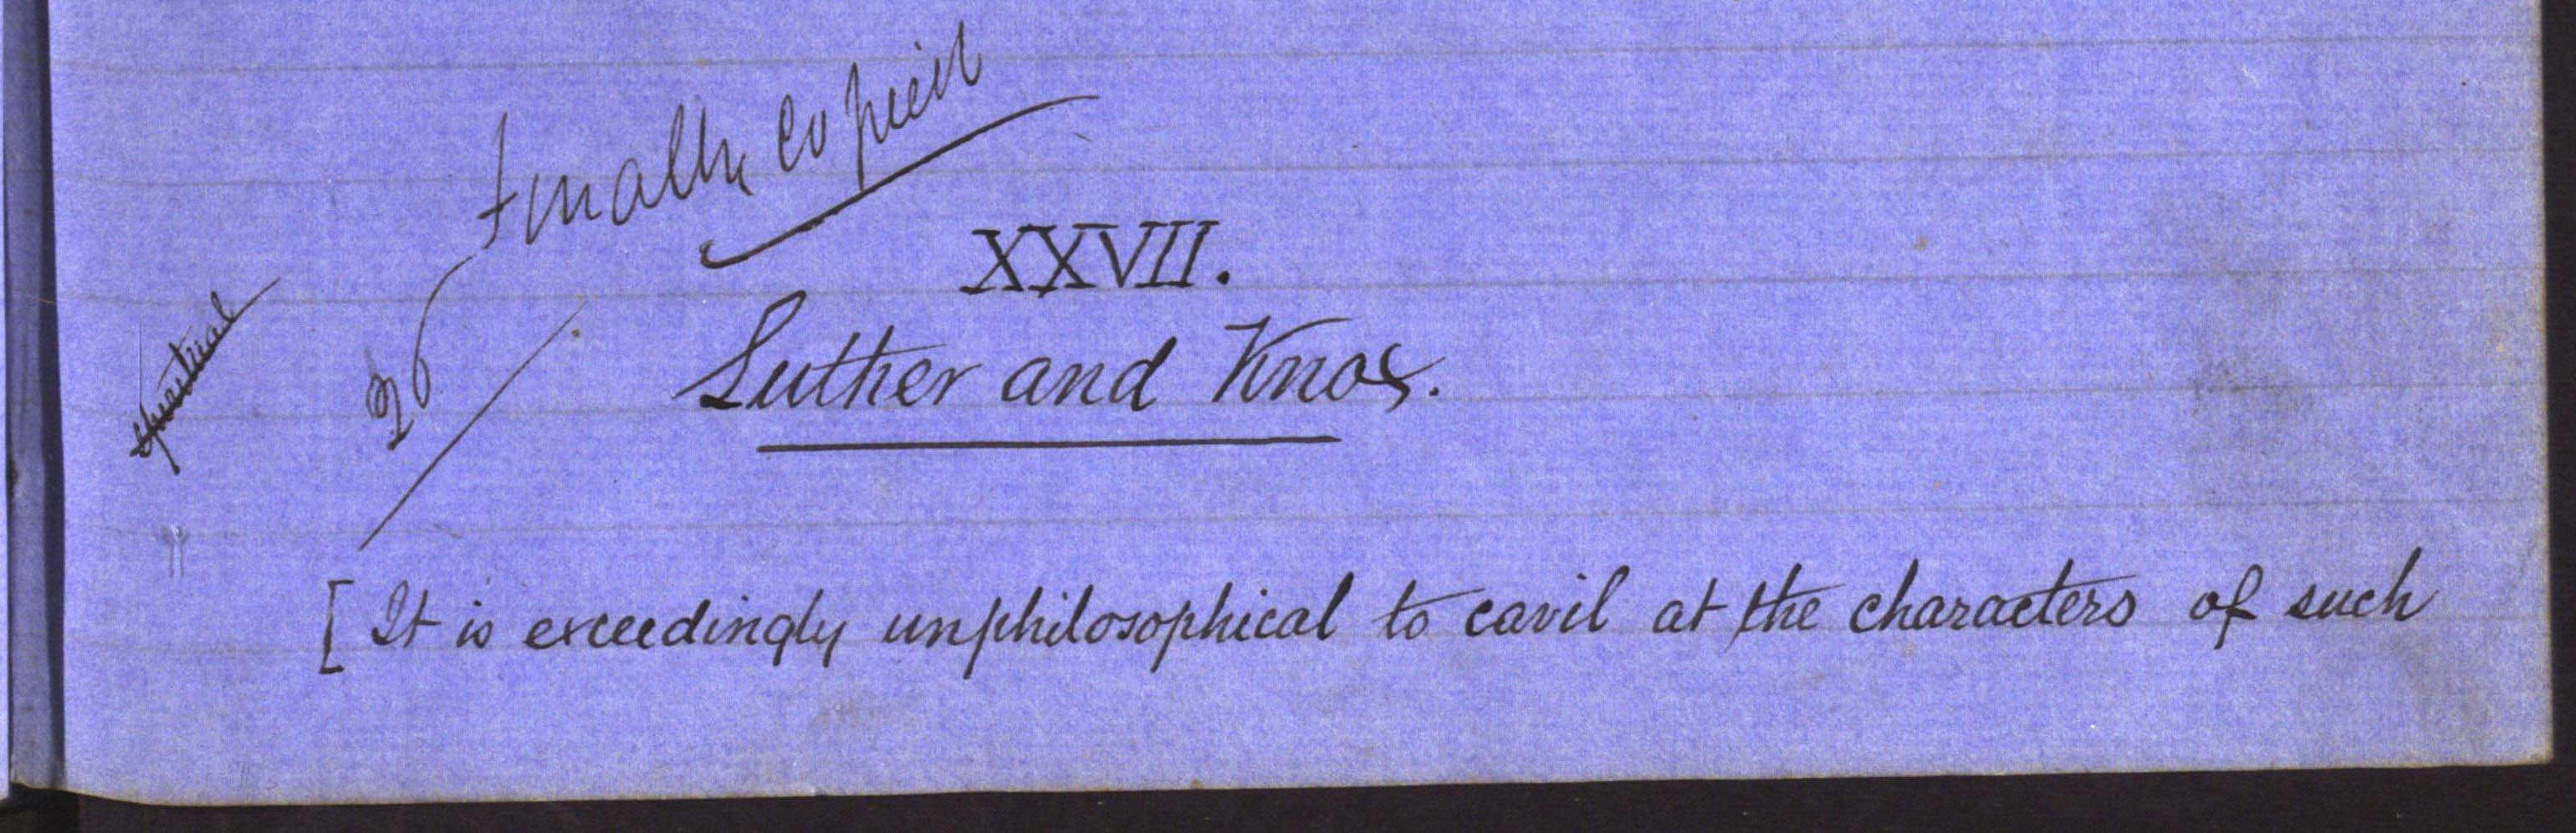 Finally Copied
XXVII.
spiritual
26
Luther and Knox.
[ It is exceedingly unphilosophical to cavil at the characters of such